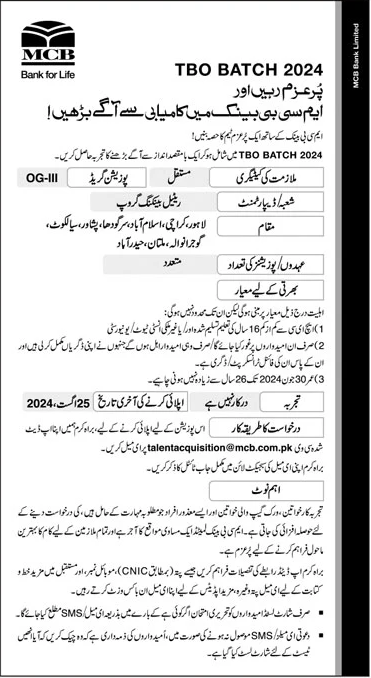 MCB
Bank for Life
MCB Bank Limited
TBO BATCH 2024
پُرعزم رہیں اور
ایم سی بی بینک میں کامیابی سے آگے بڑھیں!
ایم سی بی بینک کے ساتھ ایک پُرعزم ٹیم کا حصہ بنیں!
TBO BATCH 2024 میں شامل ہوکر ایک بامقصد انداز سے آگے بڑھنے کا تجربہ حاصل کریں۔
ملازمت کی کیٹیگری مستقل پوزیشن گریڈ OG-III
شعبہ/ڈیپارٹمنٹ ریٹیل بینکنگ گروپ
مقام لاہور، کراچی، اسلام آباد، سرگودھا، پشاور، سیالکوٹ،
گوجرانوالہ، ملتان، حیدرآباد
عہدوں/پوزیشنز کی تعداد متعدد
بھرتی کے لیے معیار
اہلیت درج ذیل معیار پر مبنی ہوگی لیکن ان تک محدود نہیں ہوگی:
1) ایچ ای سی سے کم از کم 16 سال کی تعلیم تسلیم شدہ اور/یا غیر ملکی انسٹی ٹیوٹ/یونیورسٹی
2) صرف ان امیدواروں پر غور کیا جائے گا/صرف وہی امیدوار اہل ہوں گے جنہوں نے اپنی ڈگریاں مکمل کرلی ہیں اور
ان کے پاس ان کی فائنل ٹرانسکرپٹ/ڈگری ہے۔
3) عمر 30 جون 2024 تک 26 سال سے زیادہ نہیں ہونی چاہیے۔
تجربہ درکار نہیں ہے اپلائی کرنے کی آخری تاریخ 25 اگست، 2024
درخواست کا طریقہ کار اس پوزیشن کے لیے اپلائی کرنے کے لیے، براہ کرم ہمیں اپنا اپ ڈیٹ
شدہ سی وی talentacquisition@mcb.com.pk پر ای میل کریں۔
براہ کرم اپنی ای میل کی سبجیکٹ لائن میں مکمل جاب ٹائٹل کا ذکر کریں۔
اہم نوٹ
تجربہ کار خواتین، ورک گیپ والی خواتین اور ایسے معذور افراد جو مطلوبہ مہارت کے حامل ہیں، کی درخواست دینے کے
لئے حوصلہ افزائی کی جاتی ہے۔ ایم سی بی بینک لمیٹڈ ایک مساوی مواقع کا آجر ہے اور تمام ملازمین کے لیے کام کا بہترین
ماحول فراہم کرنے کے لیے پُرعزم ہے۔
براہ کرم اپ ڈیٹڈ رابطے کی تفصیلات فراہم کریں جیسے پتہ (بمطابق CNIC)، موبائل نمبر، اور مستقبل میں مزید خط و
کتابت کے لیے ای میل پتہ وغیرہ، مزید اپڈیٹس کے لیے اپنا ای میل ان باکس وزٹ کرتے رہیں۔
• صرف شارٹ لسٹڈ امیدواروں کو تحریری امتحان اگر کوئی ہے کے بارے میں بذریعہ ای میل/SMS مطلع کیا جائے گا۔
• دعوتی ای میل/SMS موصول نہ ہونے کی صورت میں، اُمیدواروں کی ذمہ داری ہے کہ وہ چیک کریں کہ آیا انھیں
ٹیسٹ کے لئے شارٹ لسٹ کیا گیا ہے۔